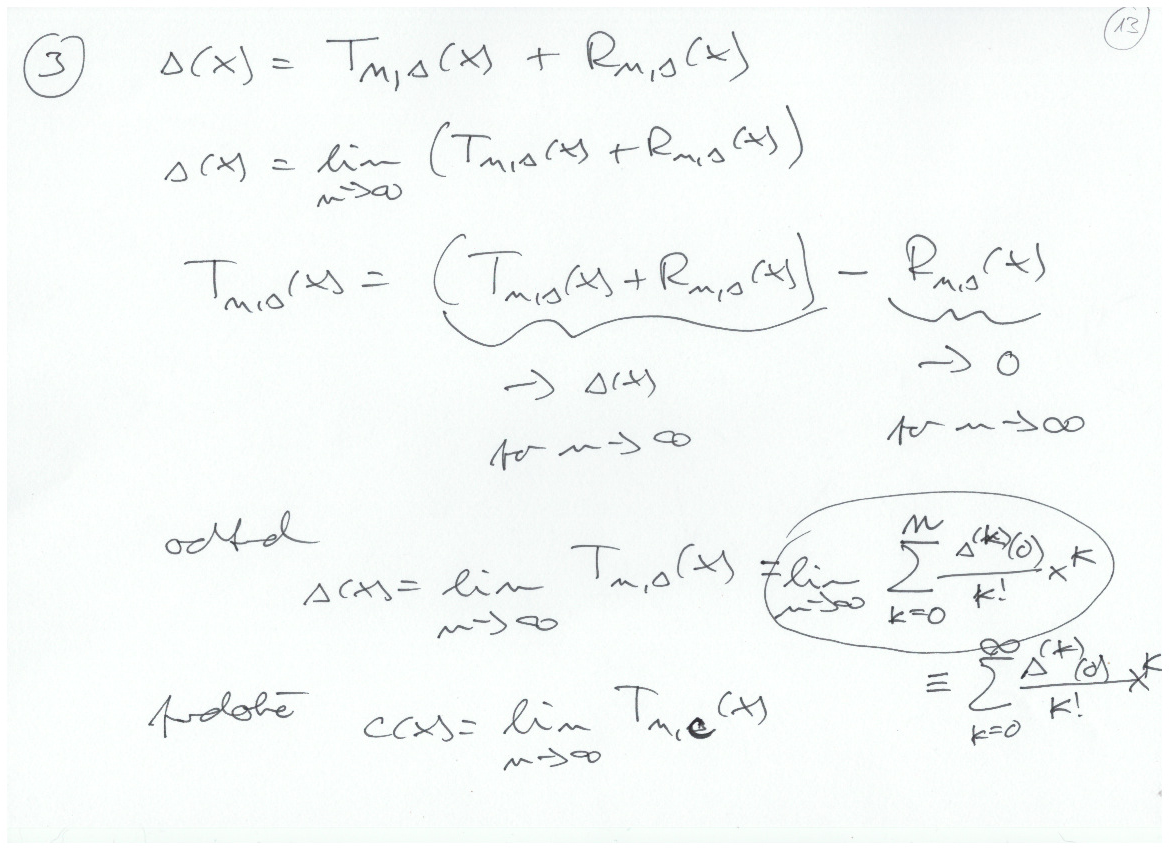 13
3 s(x) = T_{n,s}(x) + R_{n,s}(x)
s(x) = lim_{n→∞} (T_{n,s}(x) + R_{n,s}(x))
T_{n,s}(x) = (T_{n,s}(x) + R_{n,s}(x)) − R_{n,s}(x)
→ s(x) → 0
for n → ∞ for n → ∞
odtud
s(x) = lim_{n→∞} T_{n,s}(x) = lim_{n→∞} ∑_{k=0}^{n} s^{(k)}(0)/k! x^k
≡ ∑_{k=0}^{∞} s^{(k)}(0)/k! x^k
podobně c(x) = lim_{n→∞} T_{n,c}(x)